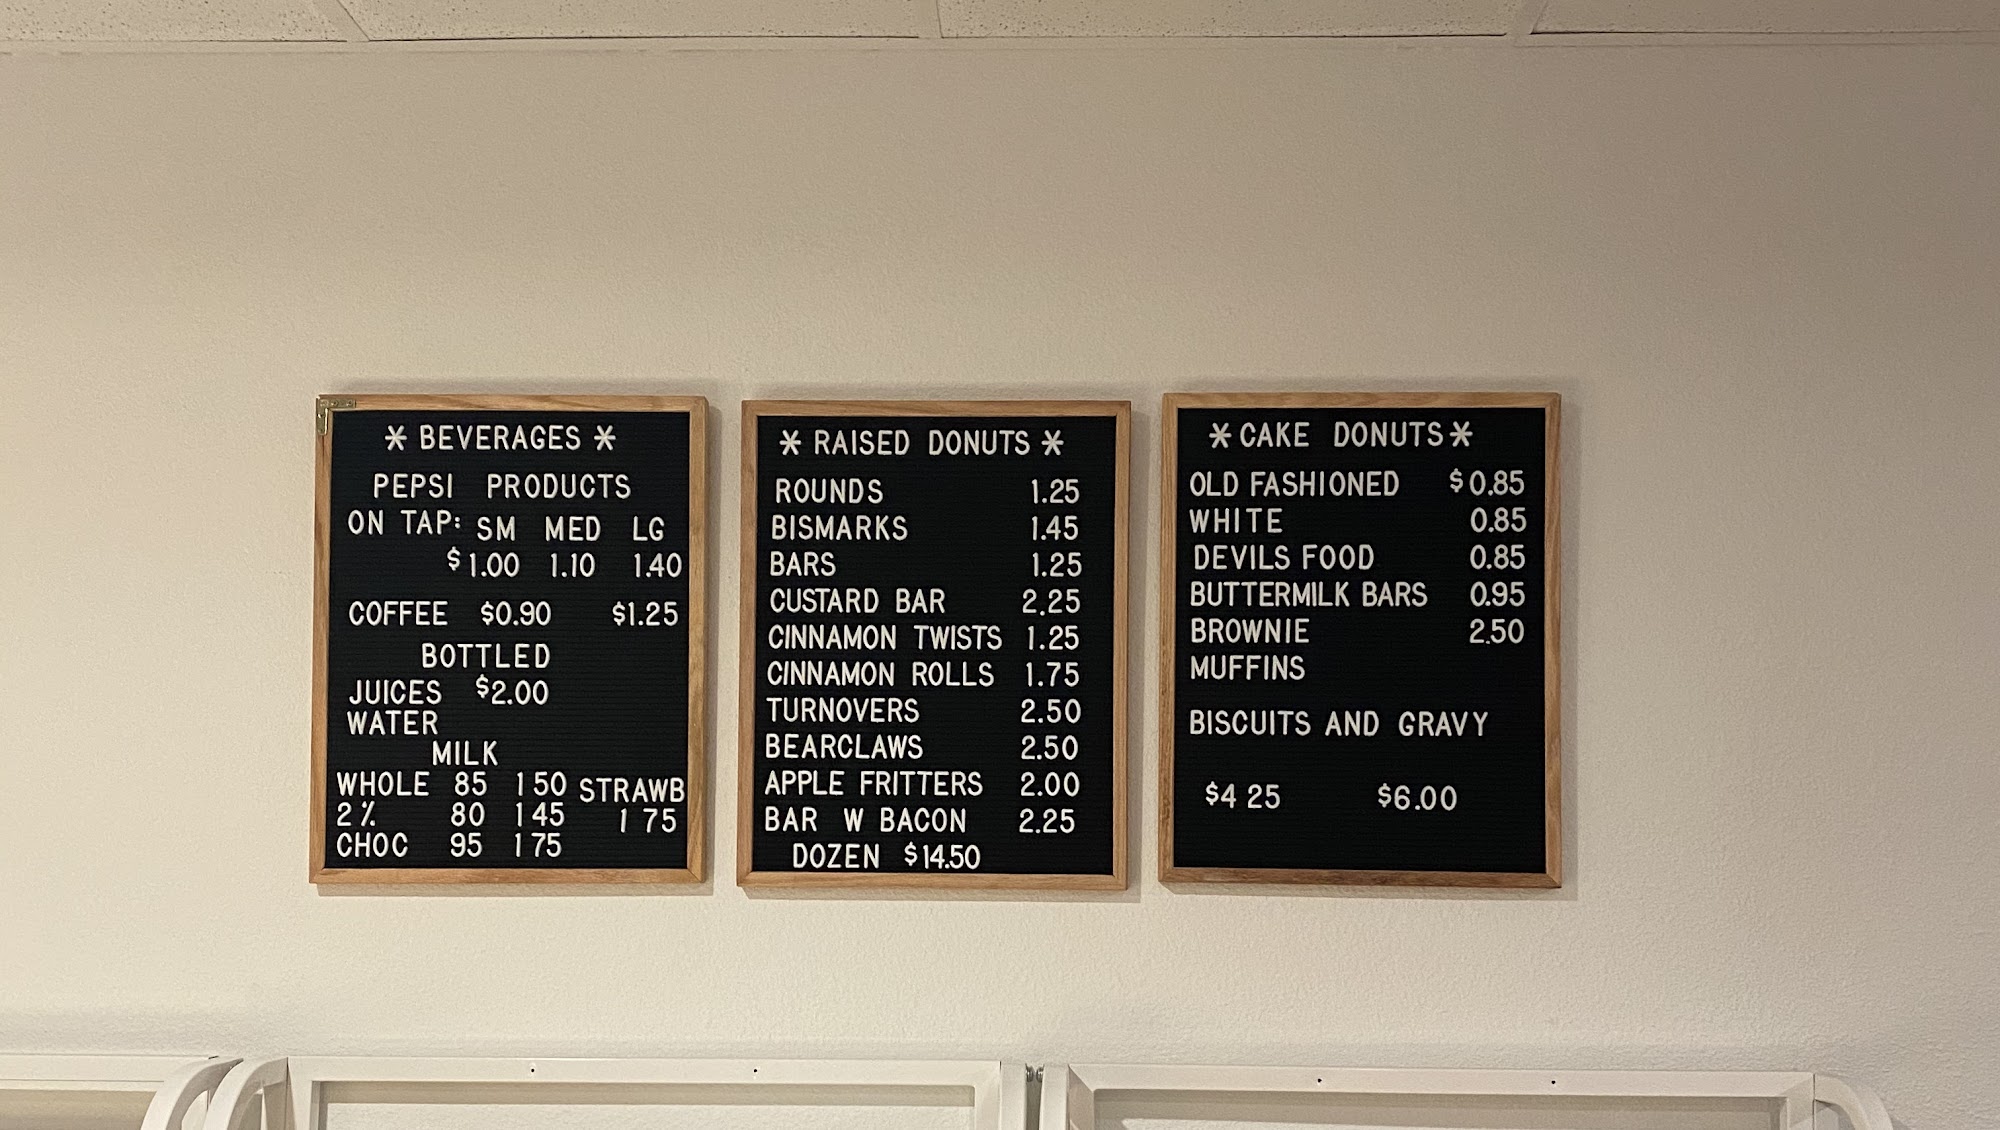 * BEVERAGES *
PEPSI PRODUCTS
ON TAP: SM MED LG
$1.00 1.10 1.40
COFFEE $0.90 $1.25
BOTTLED
JUICES $2.00
WATER
MILK
WHOLE 85 1 50 STRAWB
2% 80 1 45 1 75
CHOC 95 1 75
* RAISED DONUTS *
ROUNDS 1.25
BISMARKS 1.45
BARS 1.25
CUSTARD BAR 2.25
CINNAMON TWISTS 1.25
CINNAMON ROLLS 1.75
TURNOVERS 2.50
BEARCLAWS 2.50
APPLE FRITTERS 2.00
BAR W BACON 2.25
DOZEN $14.50
* CAKE DONUTS *
OLD FASHIONED $0.85
WHITE 0.85
DEVILS FOOD 0.85
BUTTERMILK BARS 0.95
BROWNIE 2.50
MUFFINS
BISCUITS AND GRAVY
$4 25 $6.00